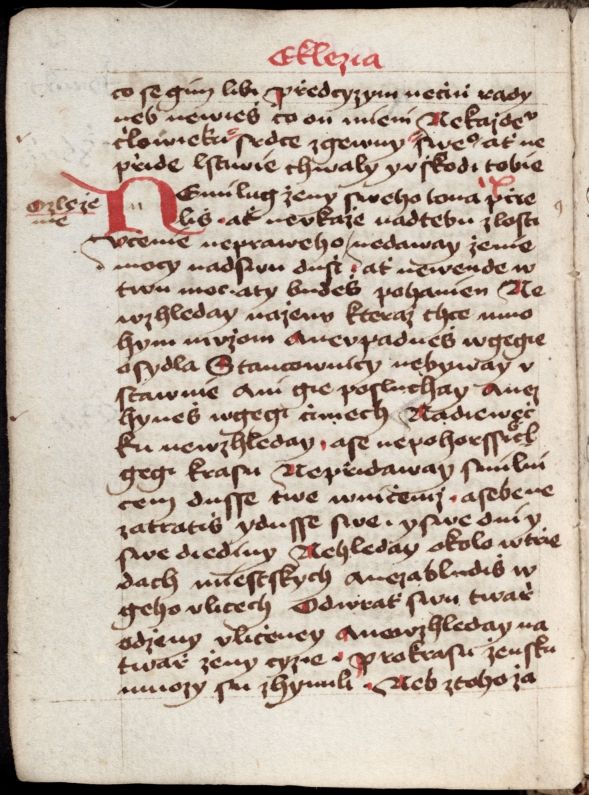 Eklezia
co se gim libi Przedcyzym neczin rady
neb newieš co on mieni Nekazde°
czlowieku srdce zgewuy swe° at ne
przide lstiwie chwaly y vsskodi tobie
Ozleze
nie
NEmilug zeny sweho lona prze
liš at nevkaze nadtebu zlosti
vczenie nepraweho neday zenie
mocy nadswu dusi at newende w
twu moc aty budeš pohanien Ne
wzhleday nazenu kteraz chce mno
hym muzom Anevpadneš wgegie
osydla Stancownicy nebyway v
stawnie Ani gie posluchay Anez
hyneš wgegi czinech Nadiewecz
ku newzhleday ase nepohorssiš
gegi krasu Nepridaway smilni
cem dusse twe wniczemz asebene
zatratiš ydusse swe yswe dni y
swe diediny Nehleday okolo wtrie
dach miestskych Anezabludiš w
geho vlicech Odwrat swu twarz
odzeny vliczeney Anewzhleday na
twarz zeny cyzie Prokrasu zensku
mnozy su zhynuli Neb ztoho za